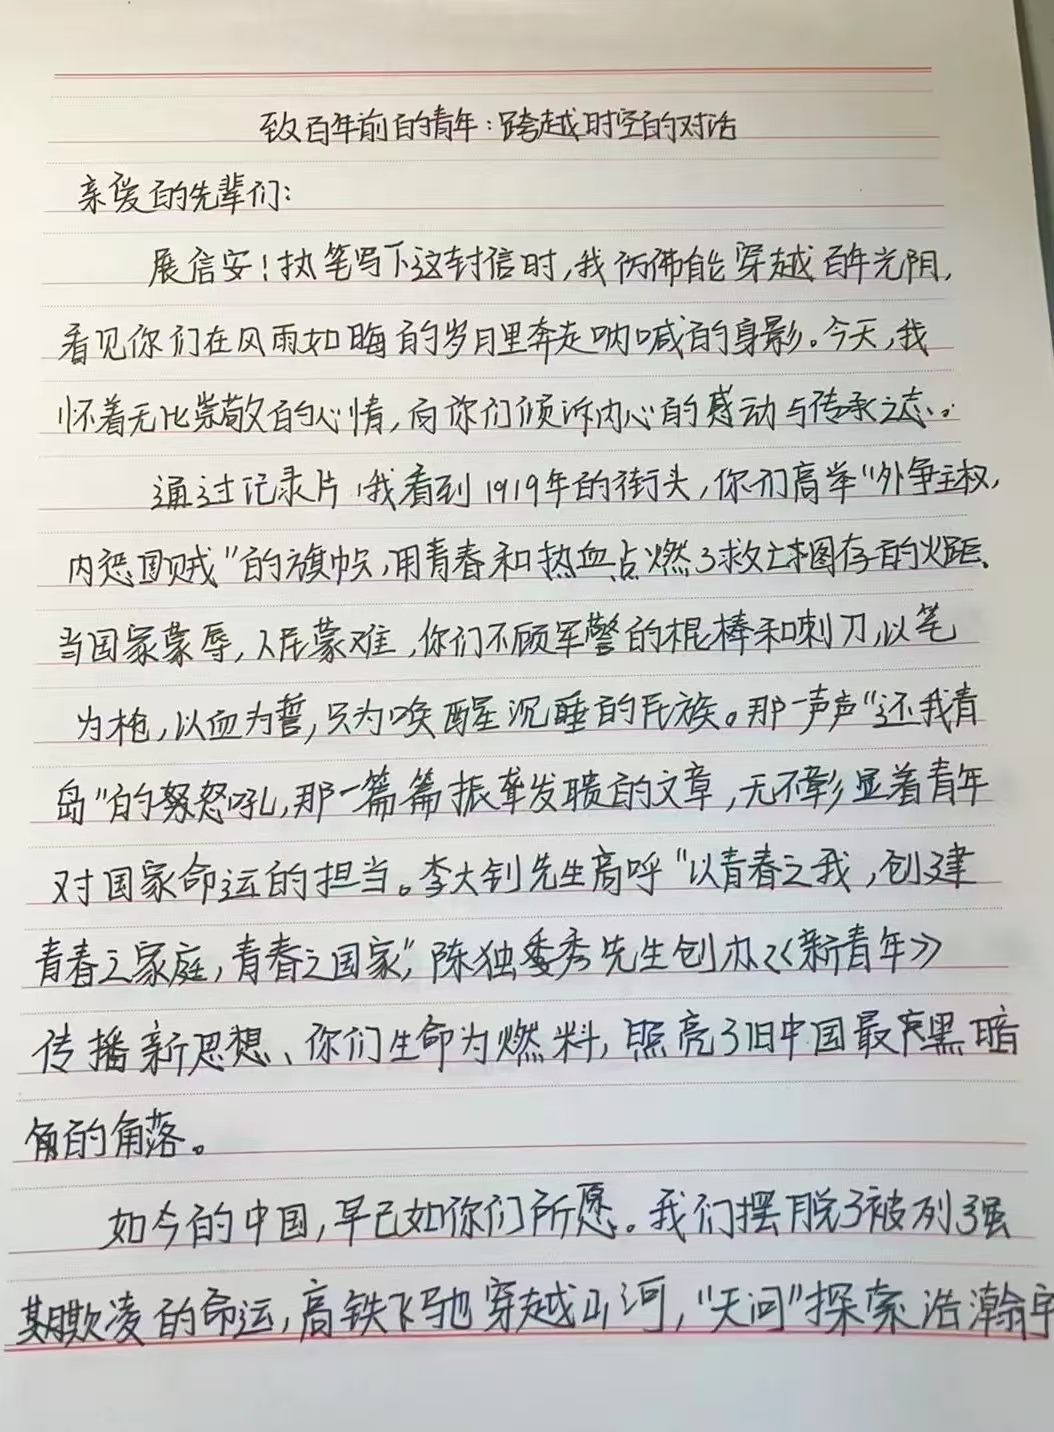 致百年前的青年：跨越时空的对话
亲爱的先辈们：
展信安！执笔写下这封信时，我仿佛能穿越百年光阴，
看见你们在风雨如晦的岁月里奔走呐喊的身影。今天，我
怀着无比崇敬的心情，向你们倾诉内心的感动与传承之志。
通过记录片，我看到1919年的街头，你们高举“外争主权，
内惩国贼”的旗帜，用青春和热血点燃了救亡图存的火距、
当国家蒙辱，人民蒙难，你们不顾军警的棍棒和刺刀，以笔
为枪，以血为誓，只为唤醒沉睡的民族。那一声声“还我青
岛”的怒吼，那一篇篇振聋发聩的文章，无不彰显着青年
对国家命运的担当。李大钊先生高呼“以青春之我，创建
青春之家庭，青春之国家”，陈独秀先生创办《新青年》
传播新思想、你们生命为燃料，照亮了旧中国最黑暗
的角落。
如今的中国，早已如你们所愿。我们摆脱了被列强
欺凌的命运，高铁飞驰穿越山河，“天问”探索浩瀚宇